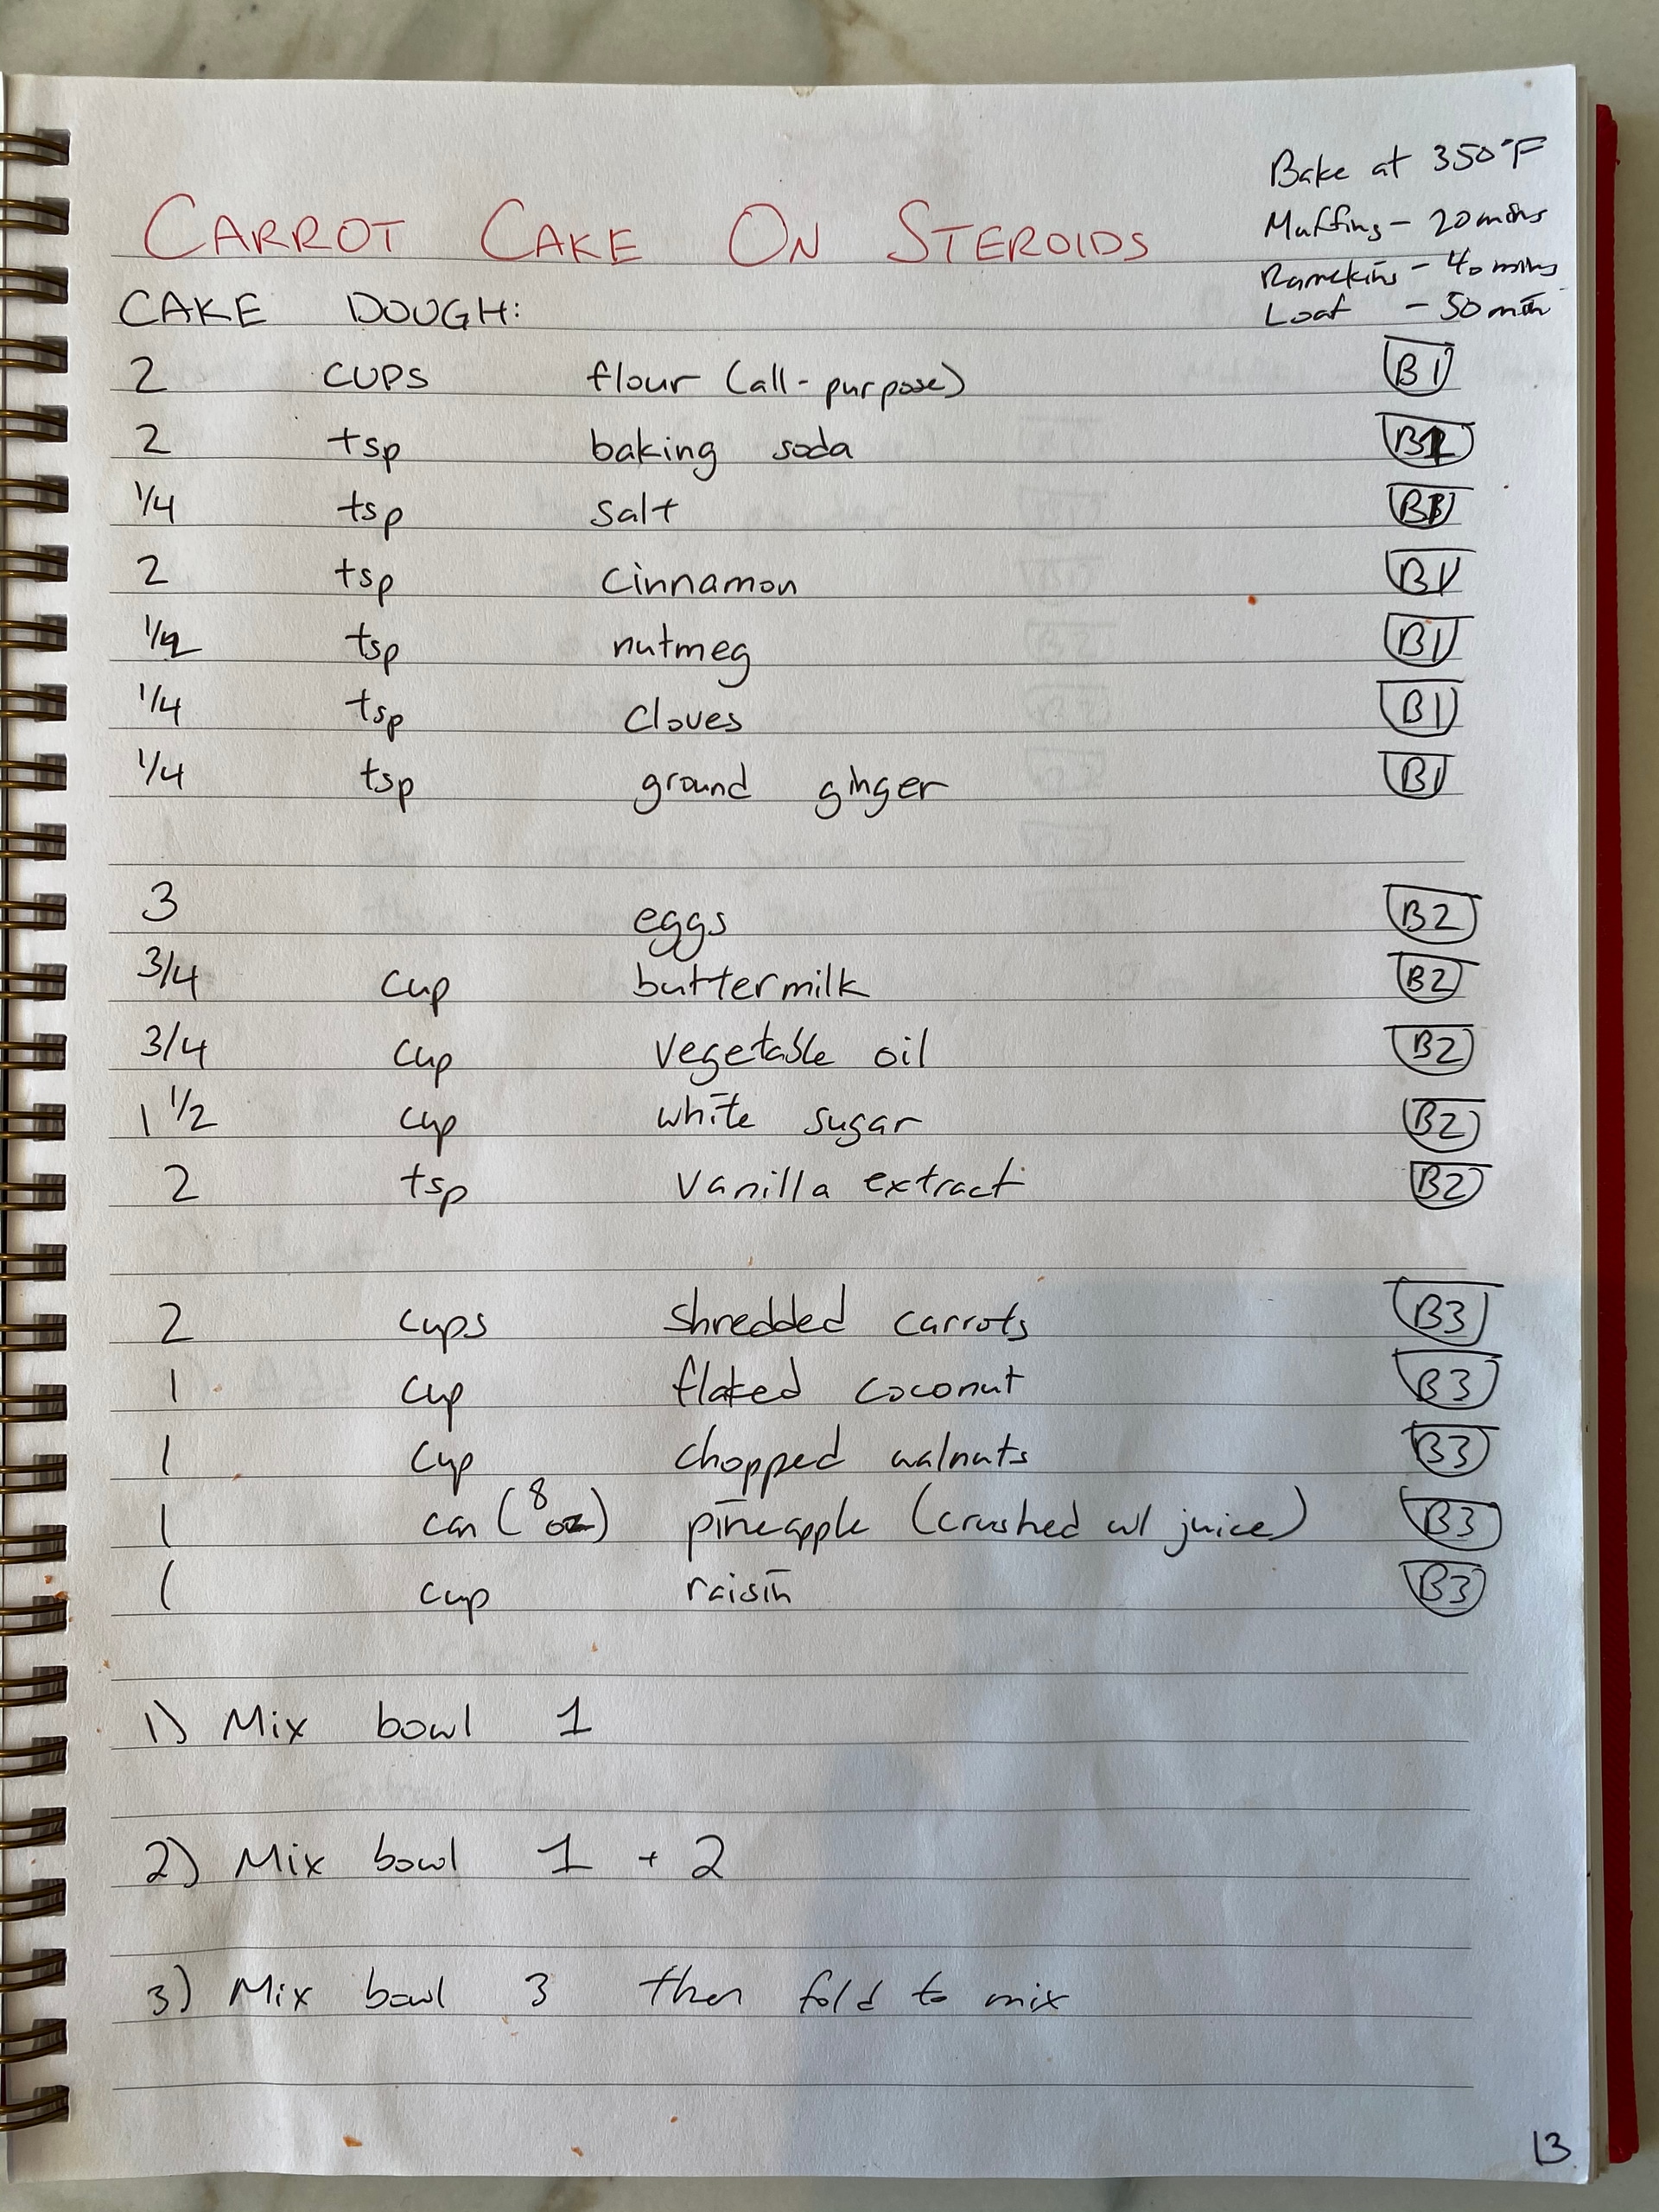 Bake at 350°F
Muffins - 20 mins
CARROT CAKE ON STEROIDS
Ramekins - 40 mins
CAKE DOUGH:
Loaf - 50 min
2 CUPS flour (all-purpose) B1
2 tsp baking soda B1
1/4 tsp salt B1
2 tsp cinnamon B1
1/2 tsp nutmeg B1
1/4 tsp cloves B1
1/4 tsp ground ginger B1
3 eggs B2
3/4 cup buttermilk B2
3/4 cup vegetable oil B2
1 1/2 cup white sugar B2
2 tsp vanilla extract B2
2 cups shredded carrots B3
1 cup flaked coconut B3
1 cup chopped walnuts B3
1 can (8 oz) pineapple (crushed w/ juice) B3
1 cup raisin B3
1) Mix bowl 1
2) Mix bowl 1 + 2
3) Mix bowl 3 then fold to mix
13